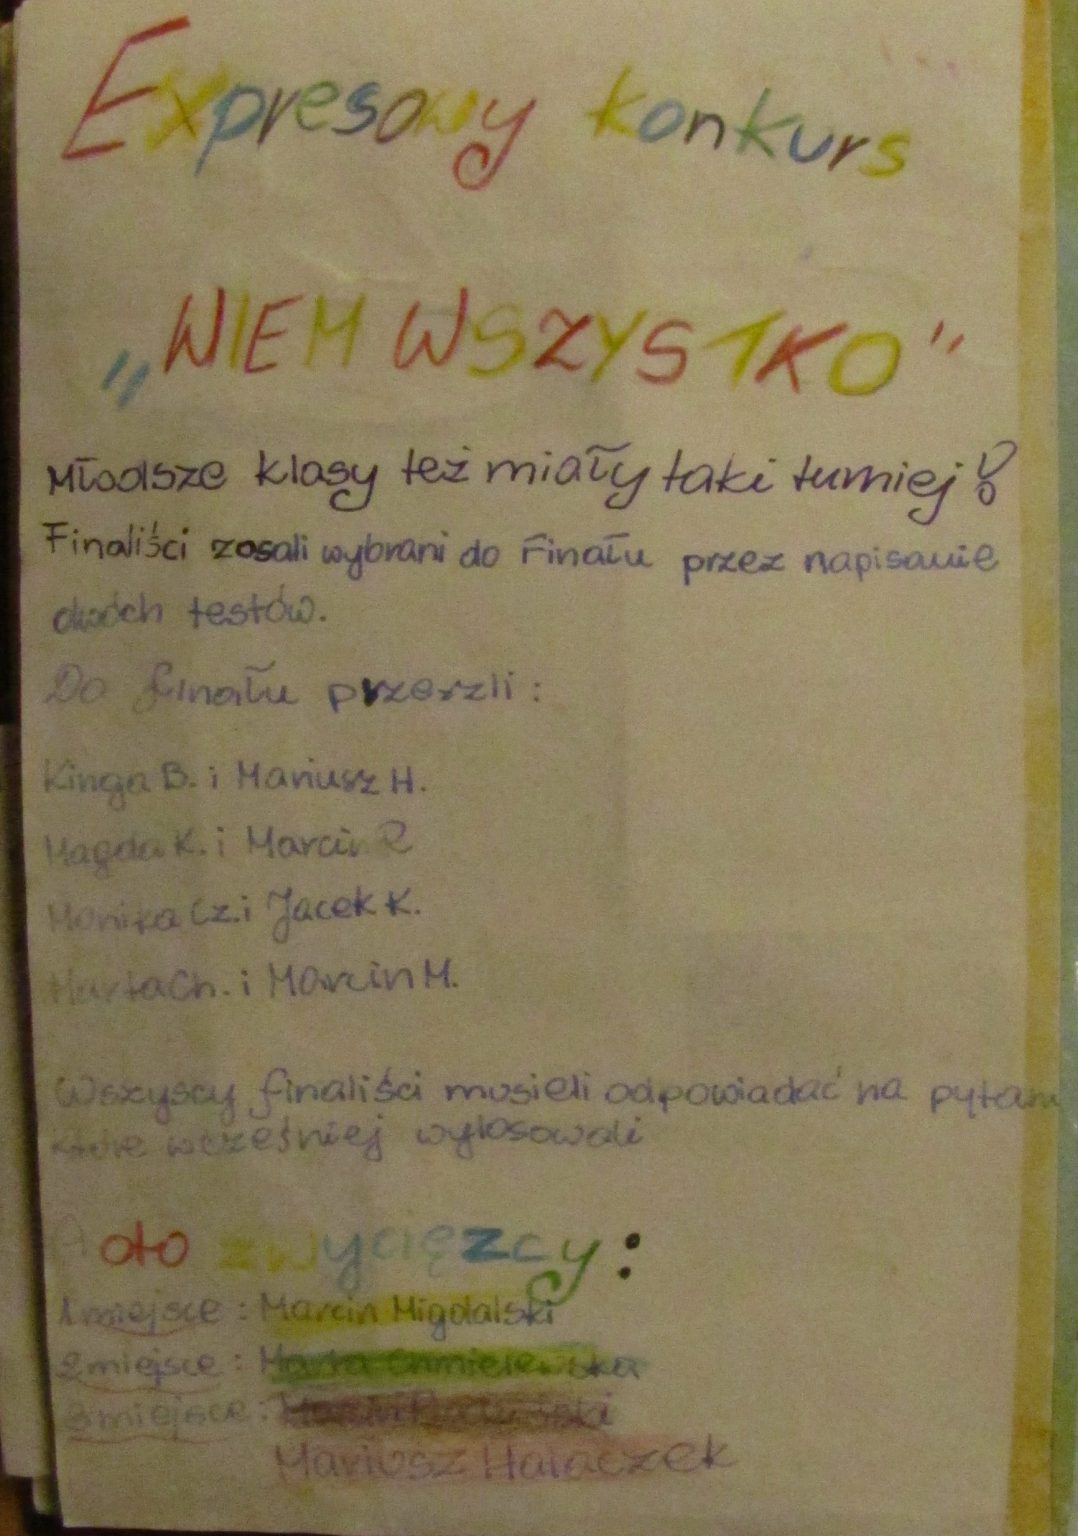 Expresowy konkurs
„WIEM WSZYSTKO"
Młodsze klasy też miały taki turniej!
Finaliści zosali wybrani do finału przez napisanie
dwóch testów.
Do finału przeszli:
Kinga B. i Mariusz H.
Magda K. i Marcin R
Monika Cz. i Jacek K.
Marta Ch. i Marcin M.
Wszyscy finaliści musieli odpowiadać na pytan
które wcześniej wylosowali
A oto zwycięzcy:
1 miejsce: Marcin Migdalski
2 miejsce: Marta Chmielewska
3 miejsce: Marcin
Mariusz Hałaczek